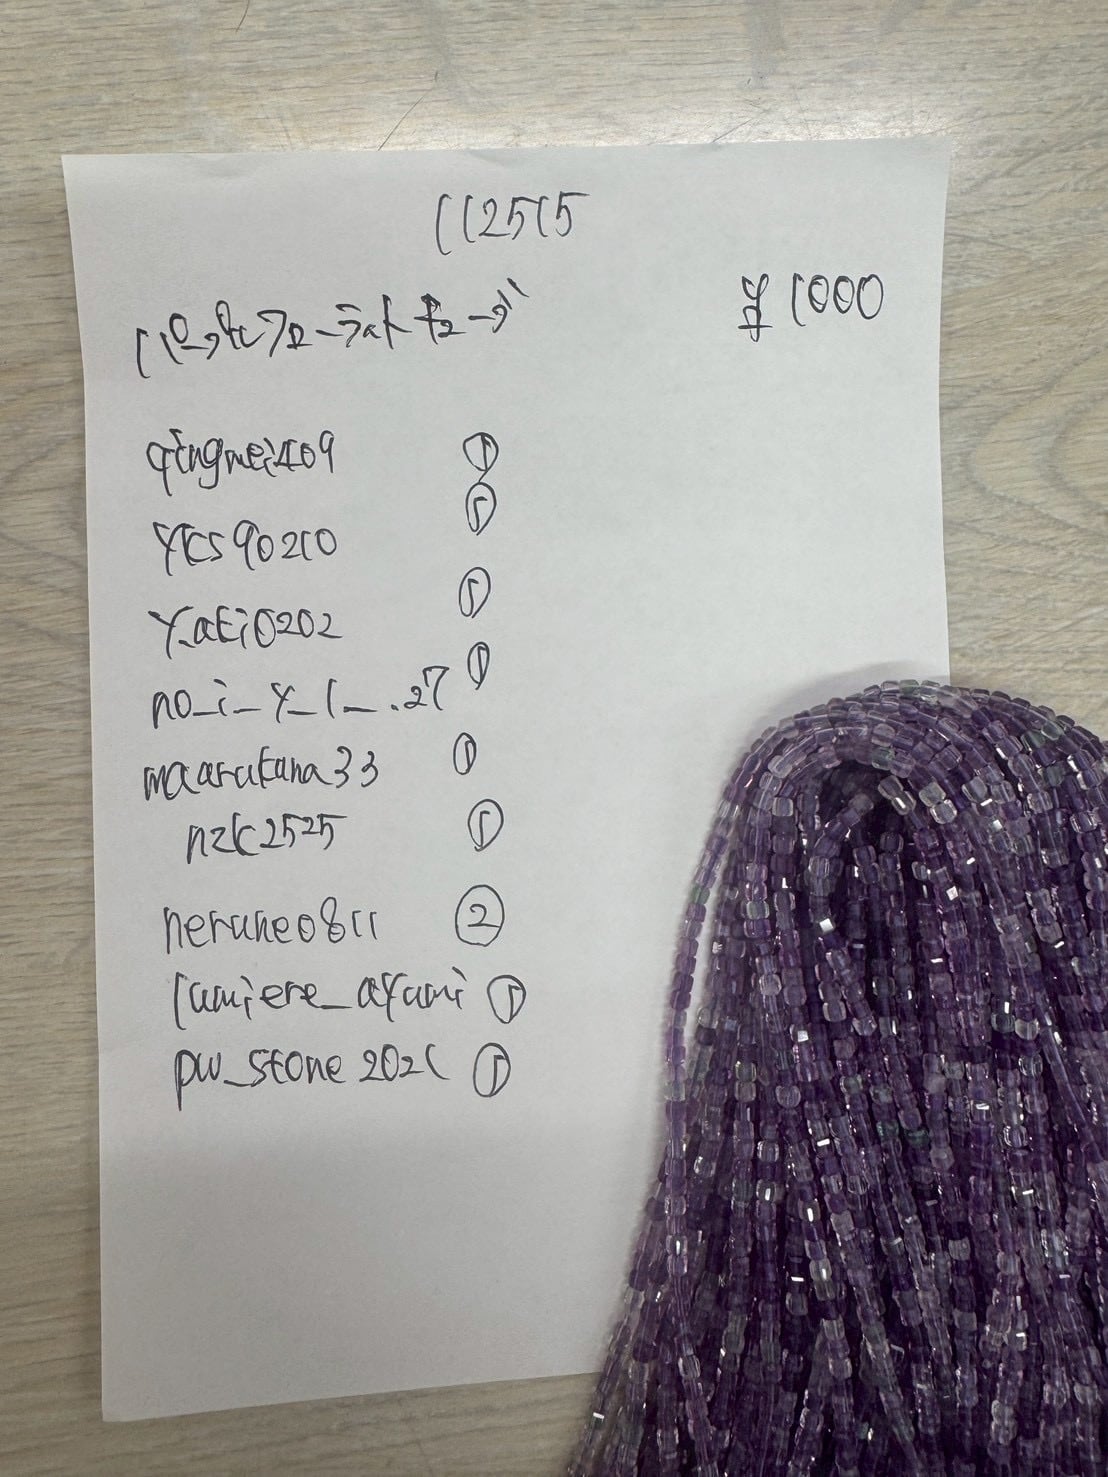 112515
パープルフローライトキューブ ¥1000
qingmei409 ①
YKS90210 ①
y.aki0202 ①
no_i_y_l_.27 ①
maarukana33 ①
nzk2525 ①
nerune0811 ②
lumiere_ayumi ①
pw_stone2021 ①